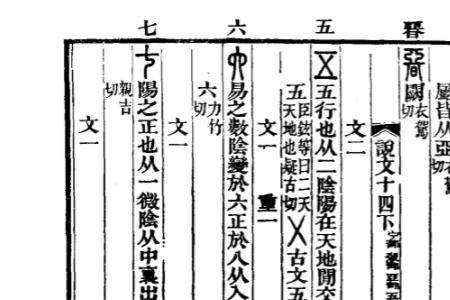 五
六
七
屬皆从亞
闕衣駕切
說文十四下
文二
五行也从二陰陽在天地閒交
五臣鉉等曰二天
天地也疑古切㐅古文五
文一 重一
易之數陰變於六正於八从入
六力竹切
文一
陽之正也从一微陰从中裏出
親吉切
文一